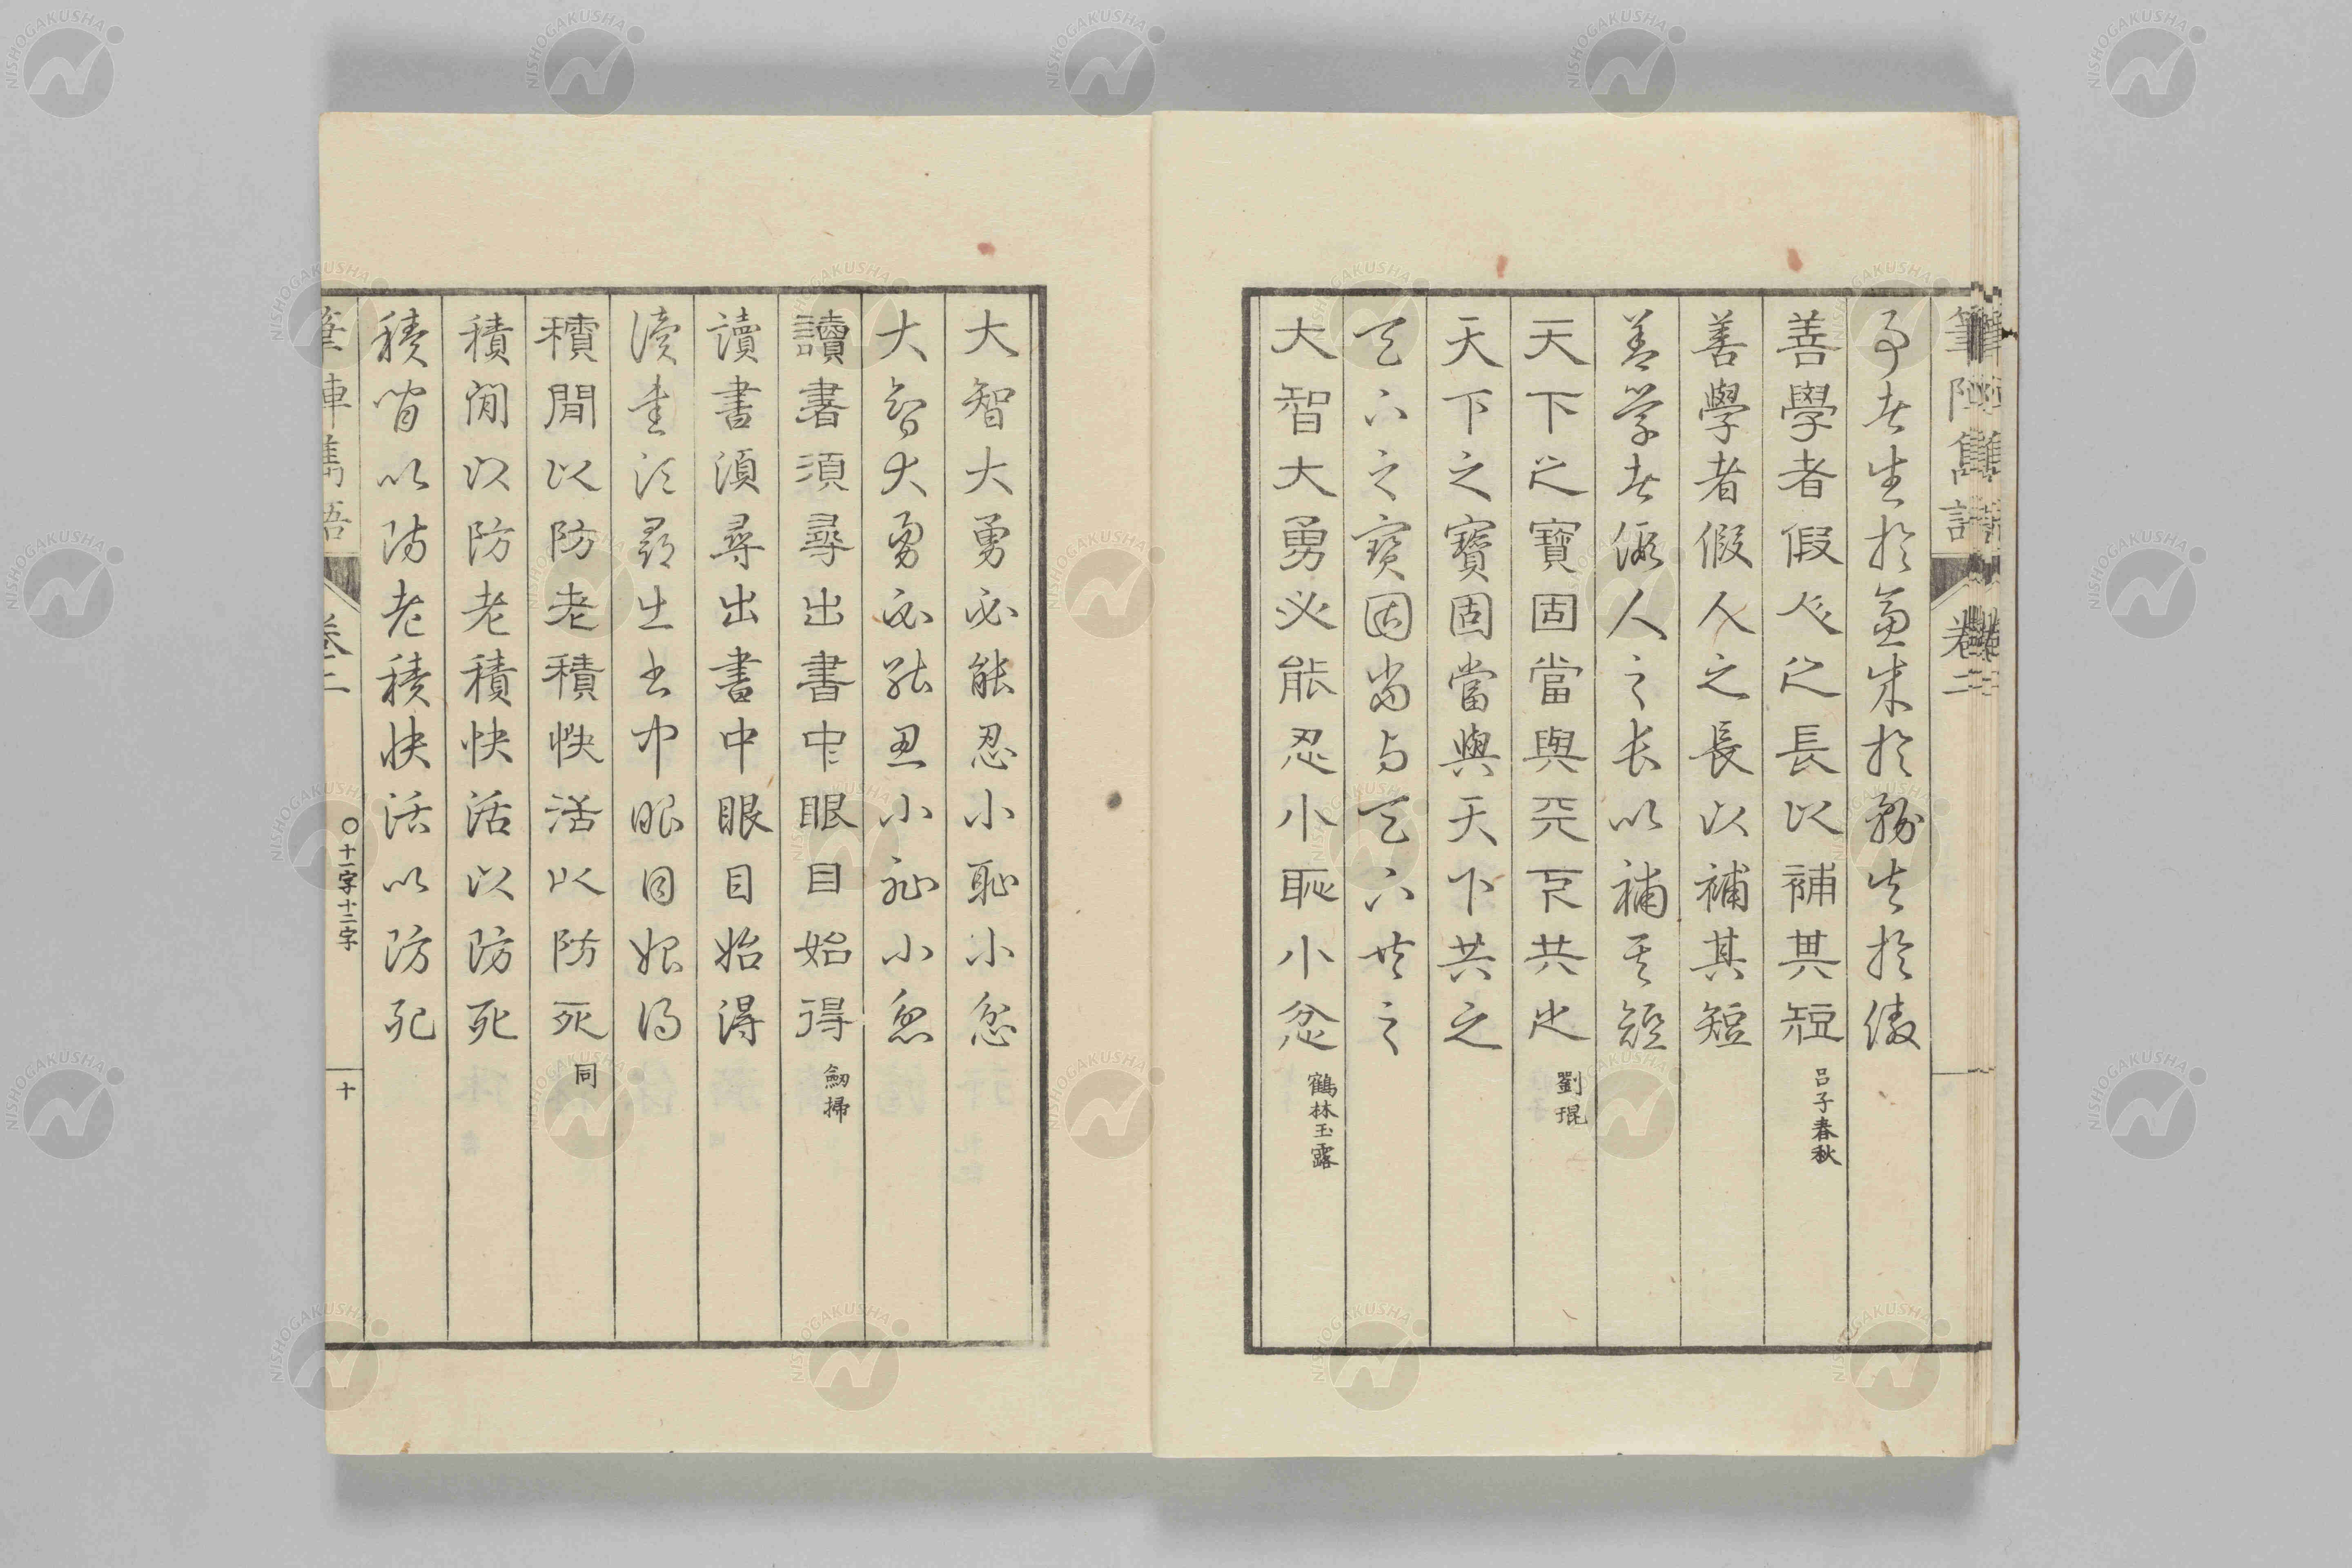 筆陣雋語 卷二
事者生於慮成於務失於傲
善學者假人之長以補其短 呂子春秋
善學者假人之長以補其短
善學者假人之長以補其短
天下之寶固當與天下共之 劉琨
天下之寶固當與天下共之
天下之寶固當与天下共之
大智大勇必能忍小恥小忿 鶴林玉露
大智大勇必能忍小恥小忿
大智大勇必能忍小恥小忿
讀書須尋出書中眼目始得 劒掃
讀書須尋出書中眼目始得
讀書須尋出書中眼目始得
積閒以防老積快活以防死 同
積閒以防老積快活以防死
積閒以防老積快活以防死
筆陣雋語 卷二 〇十一字十二字 十
NISHOGAKUSHA